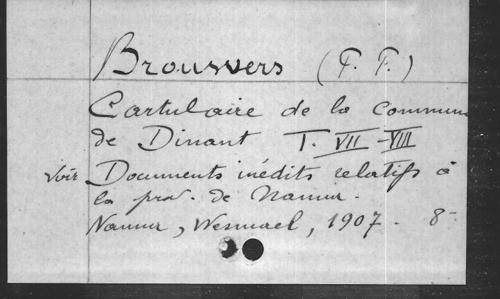 Brouwers (F. F.)
Cartulaire de la Commun
de Dinant T. VII-VIII
voir Documents inédits relatifs à
la prov. de Namur.
Namur, Wesmael, 1907. 8-